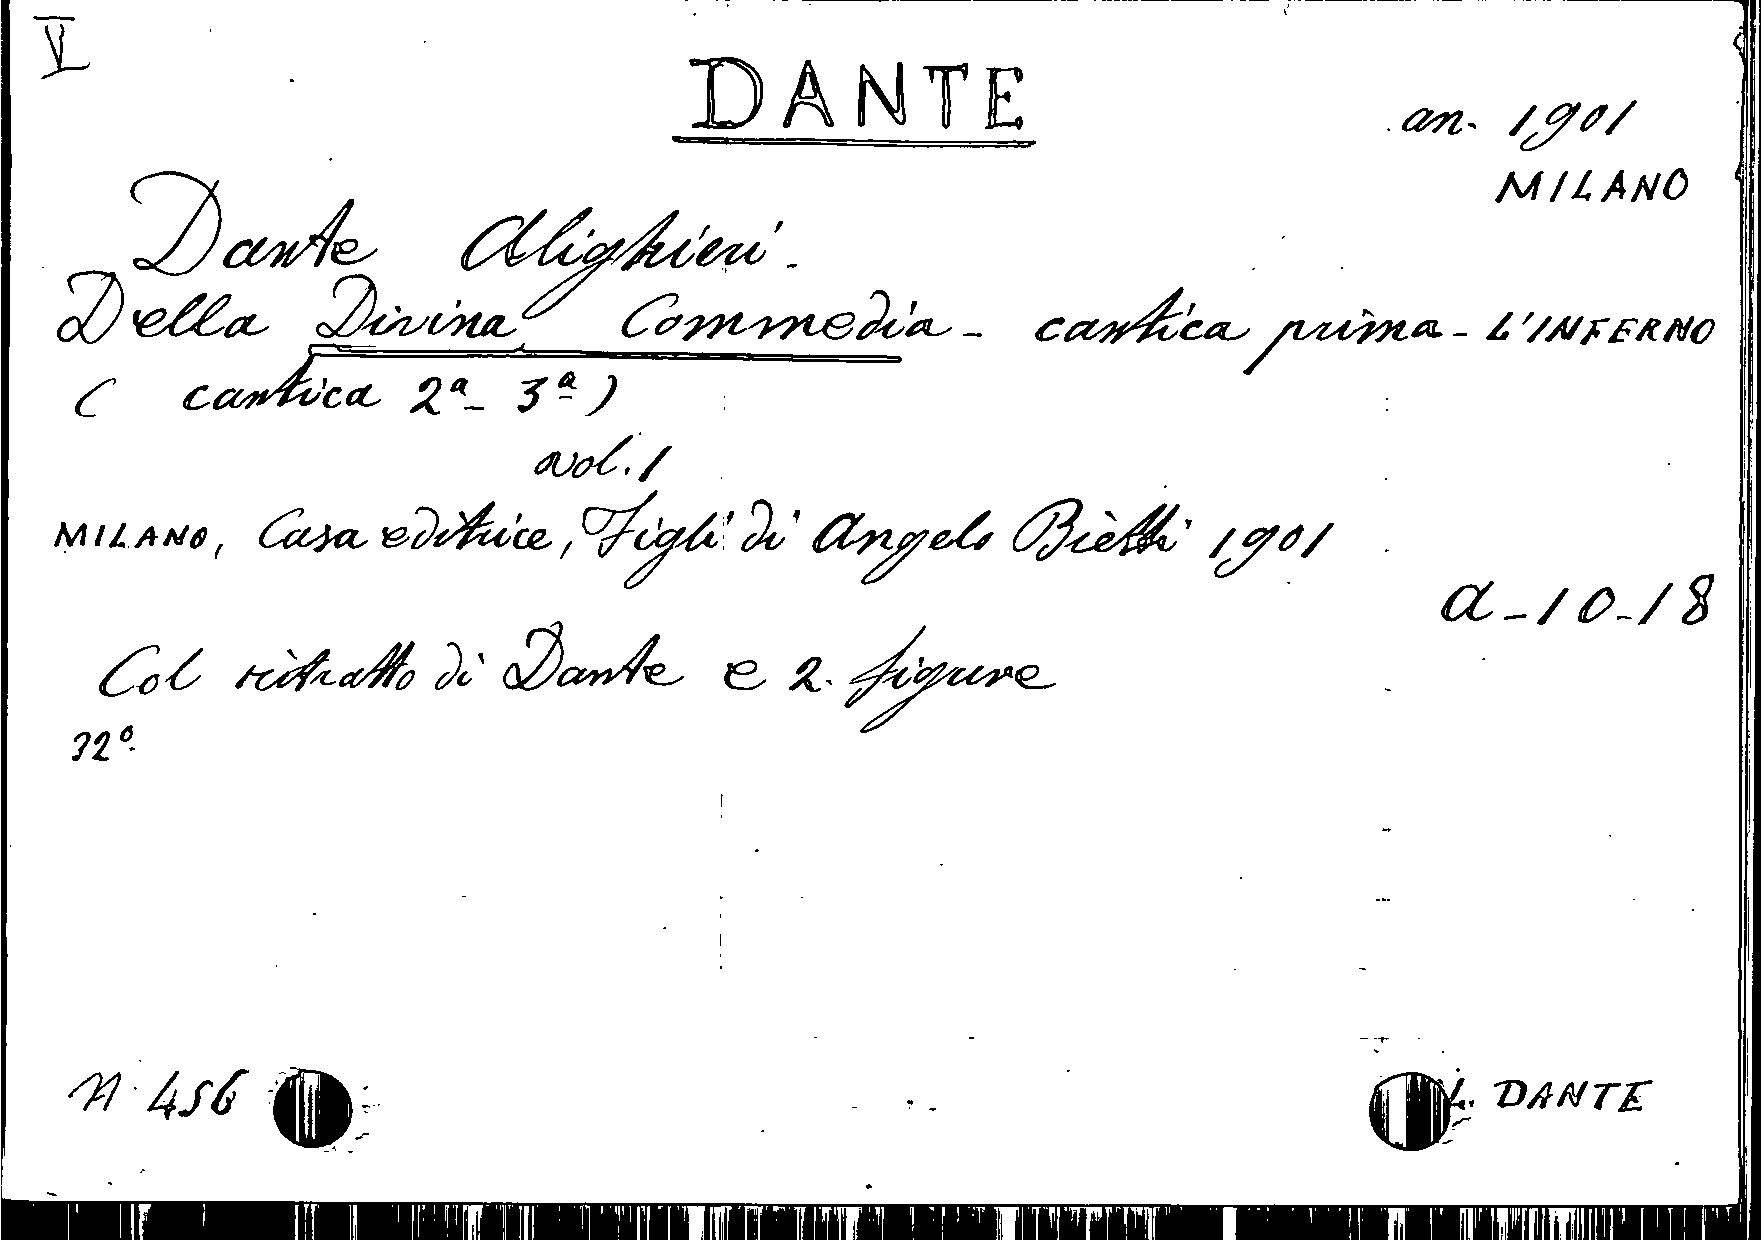 V
DANTE
an. 1901
MILANO
Dante Alighieri.
Della Divina Commedia - cantica prima - L'INFERNO
( cantica 2ª - 3ª )
vol. 1
MILANO, Casa editrice, Figli di Angelo Bietti 1901
a - 10 - 18
Col ritratto di Dante e 2. figure
32º.
N. 456
L. DANTE